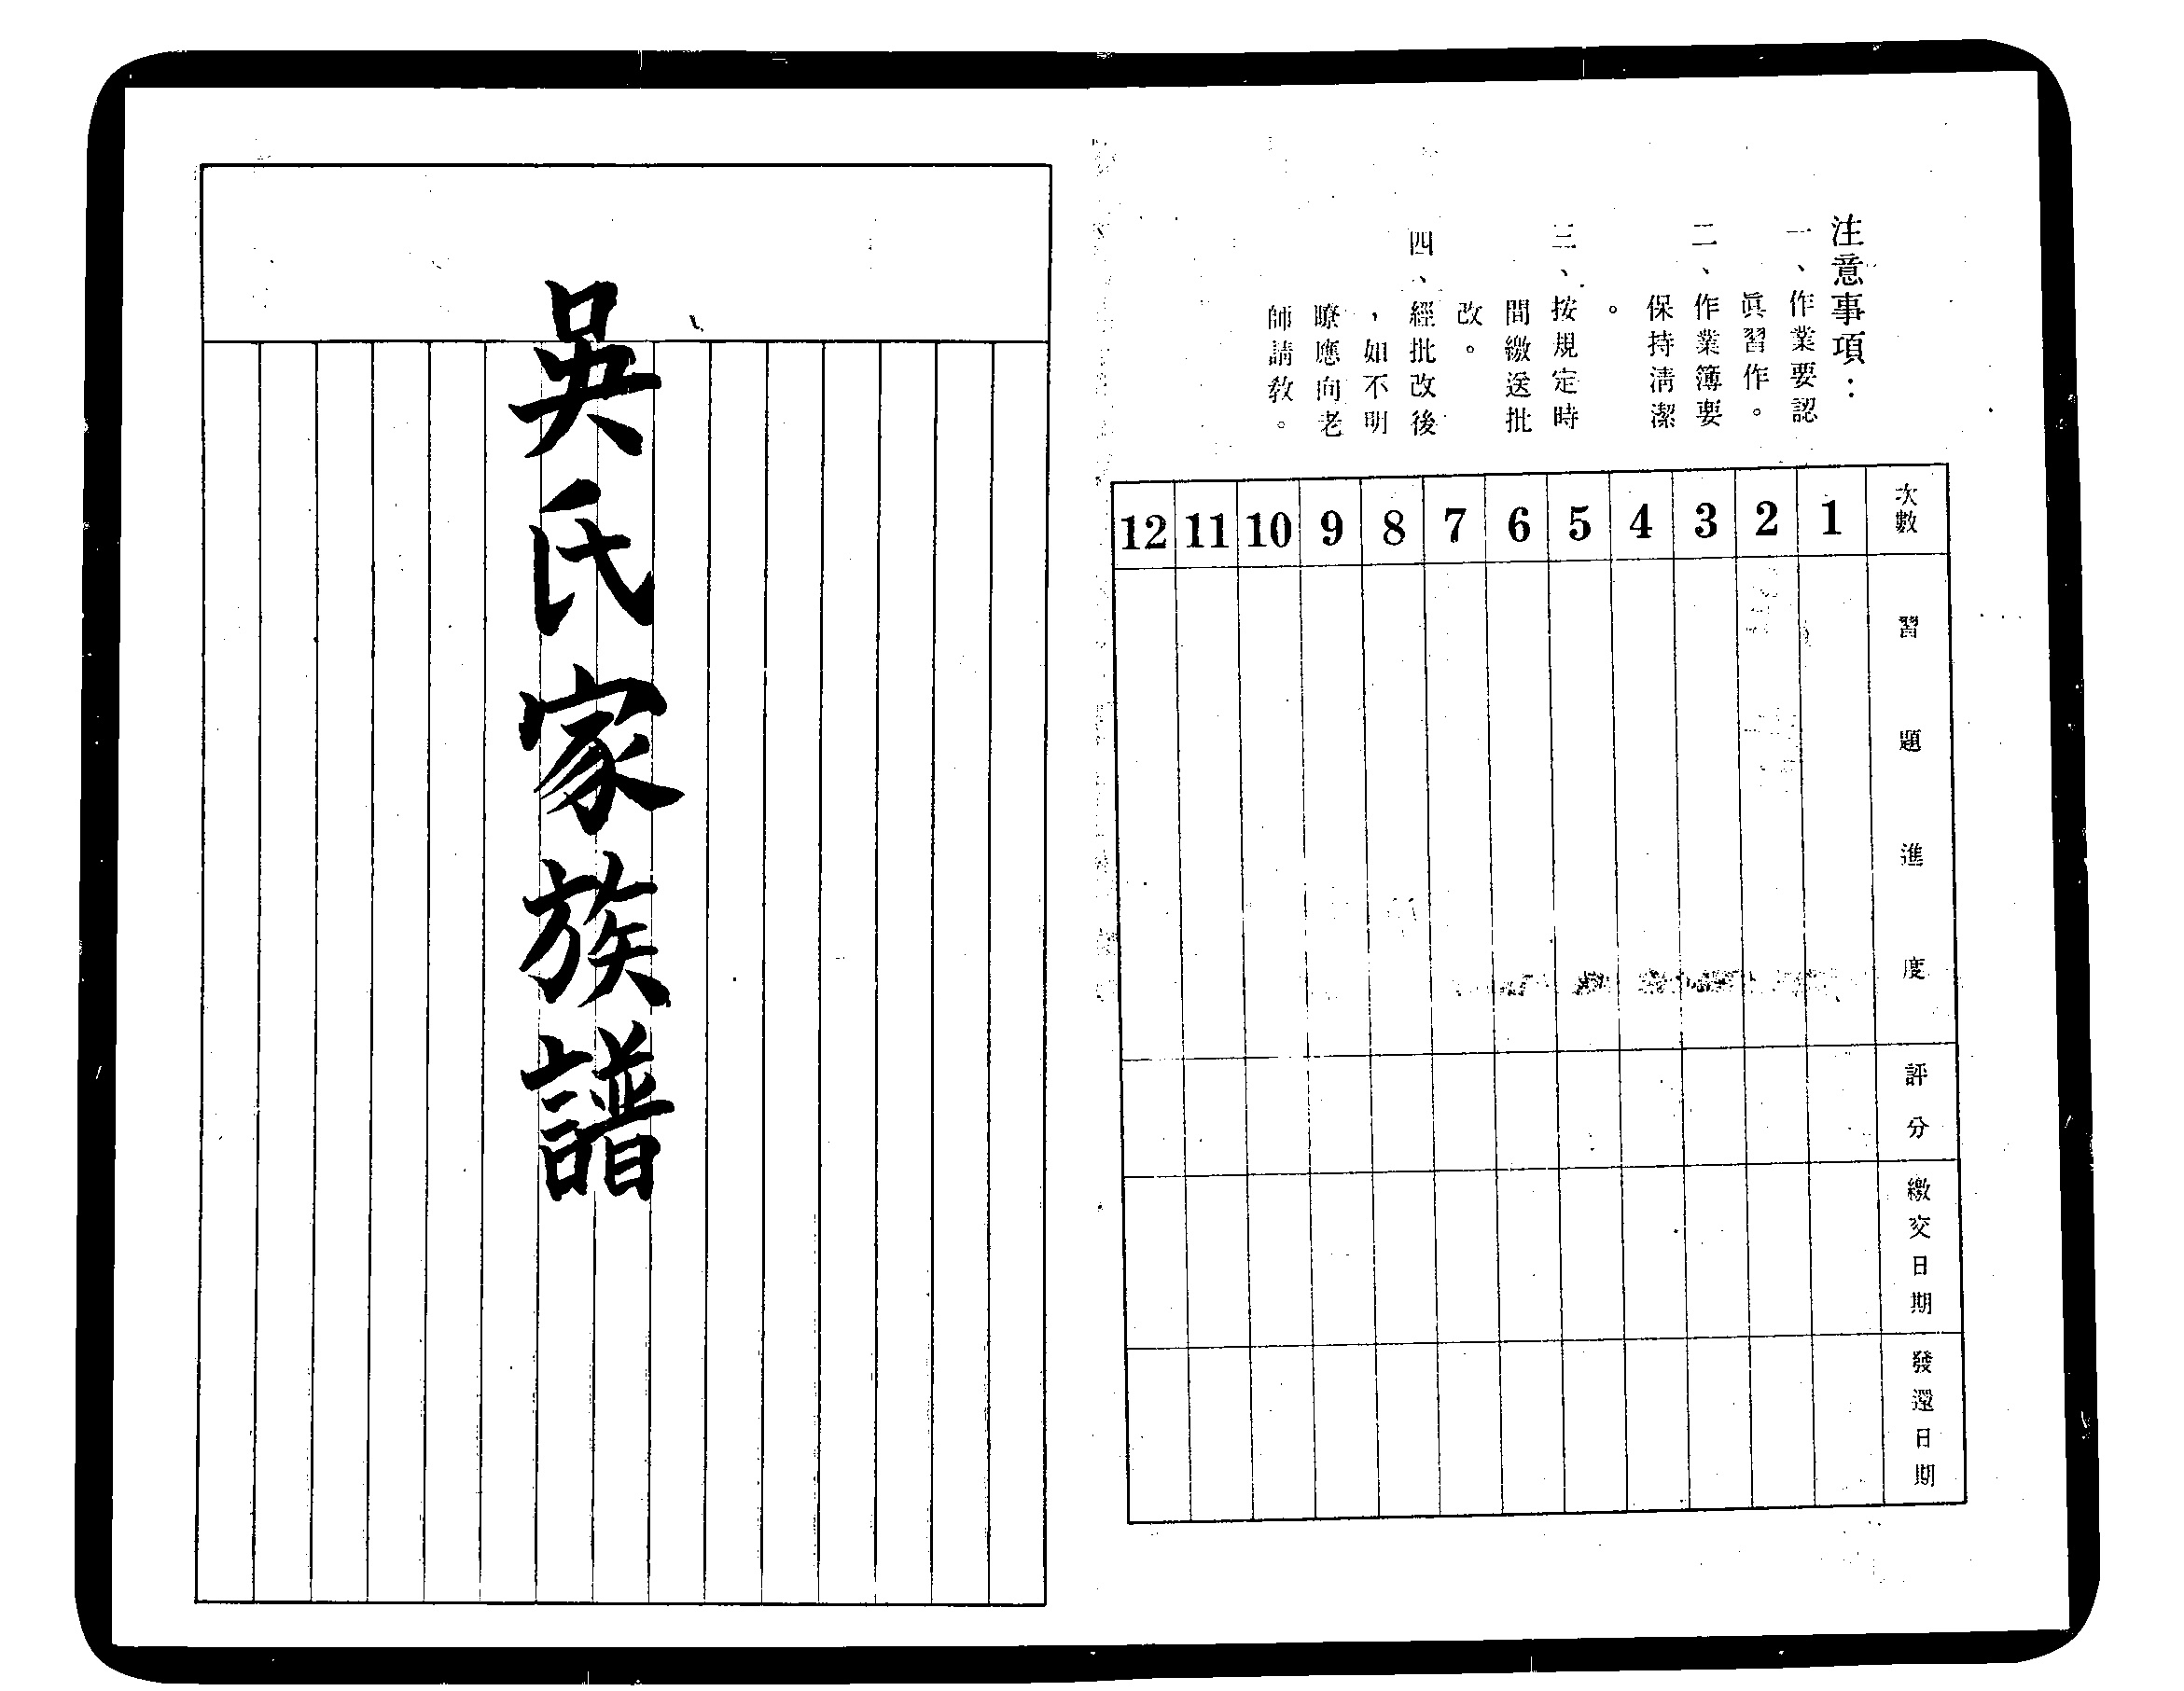 注意事項：
一、作業要認
眞習作。
二、作業簿要
保持清潔
。
三、按規定時
間繳送批
改。
四、經批改後
，如不明
瞭應向老
師請教。
次數 1 2 3 4 5 6 7 8 9 10 11 12
習題進度
評分
繳交日期
發還日期
吳氏家族譜